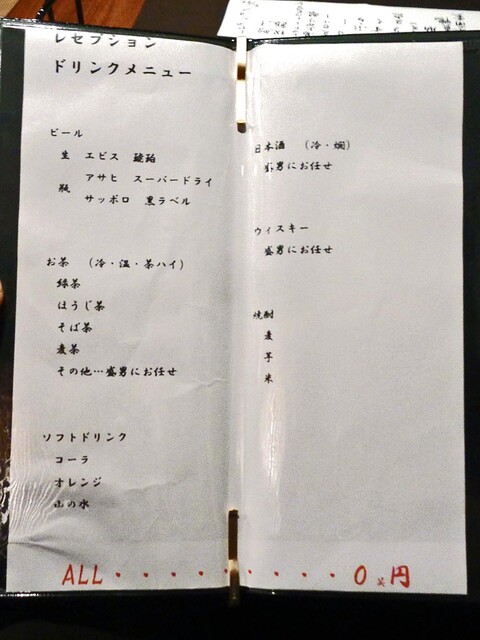 レセプション
ドリンクメニュー
ビール
生 エビス 琥珀
瓶 アサヒ スーパードライ
サッポロ 黒ラベル
お茶 (冷・温・茶ハイ)
緑茶
ほうじ茶
そば茶
麦茶
その他…盛男にお任せ
ソフトドリンク
コーラ
オレンジ
山の水
日本酒 (冷・燗)
盛男にお任せ
ウィスキー
盛男にお任せ
焼酎
麦
芋
米
ALL・・・・・・・・・・0笑円